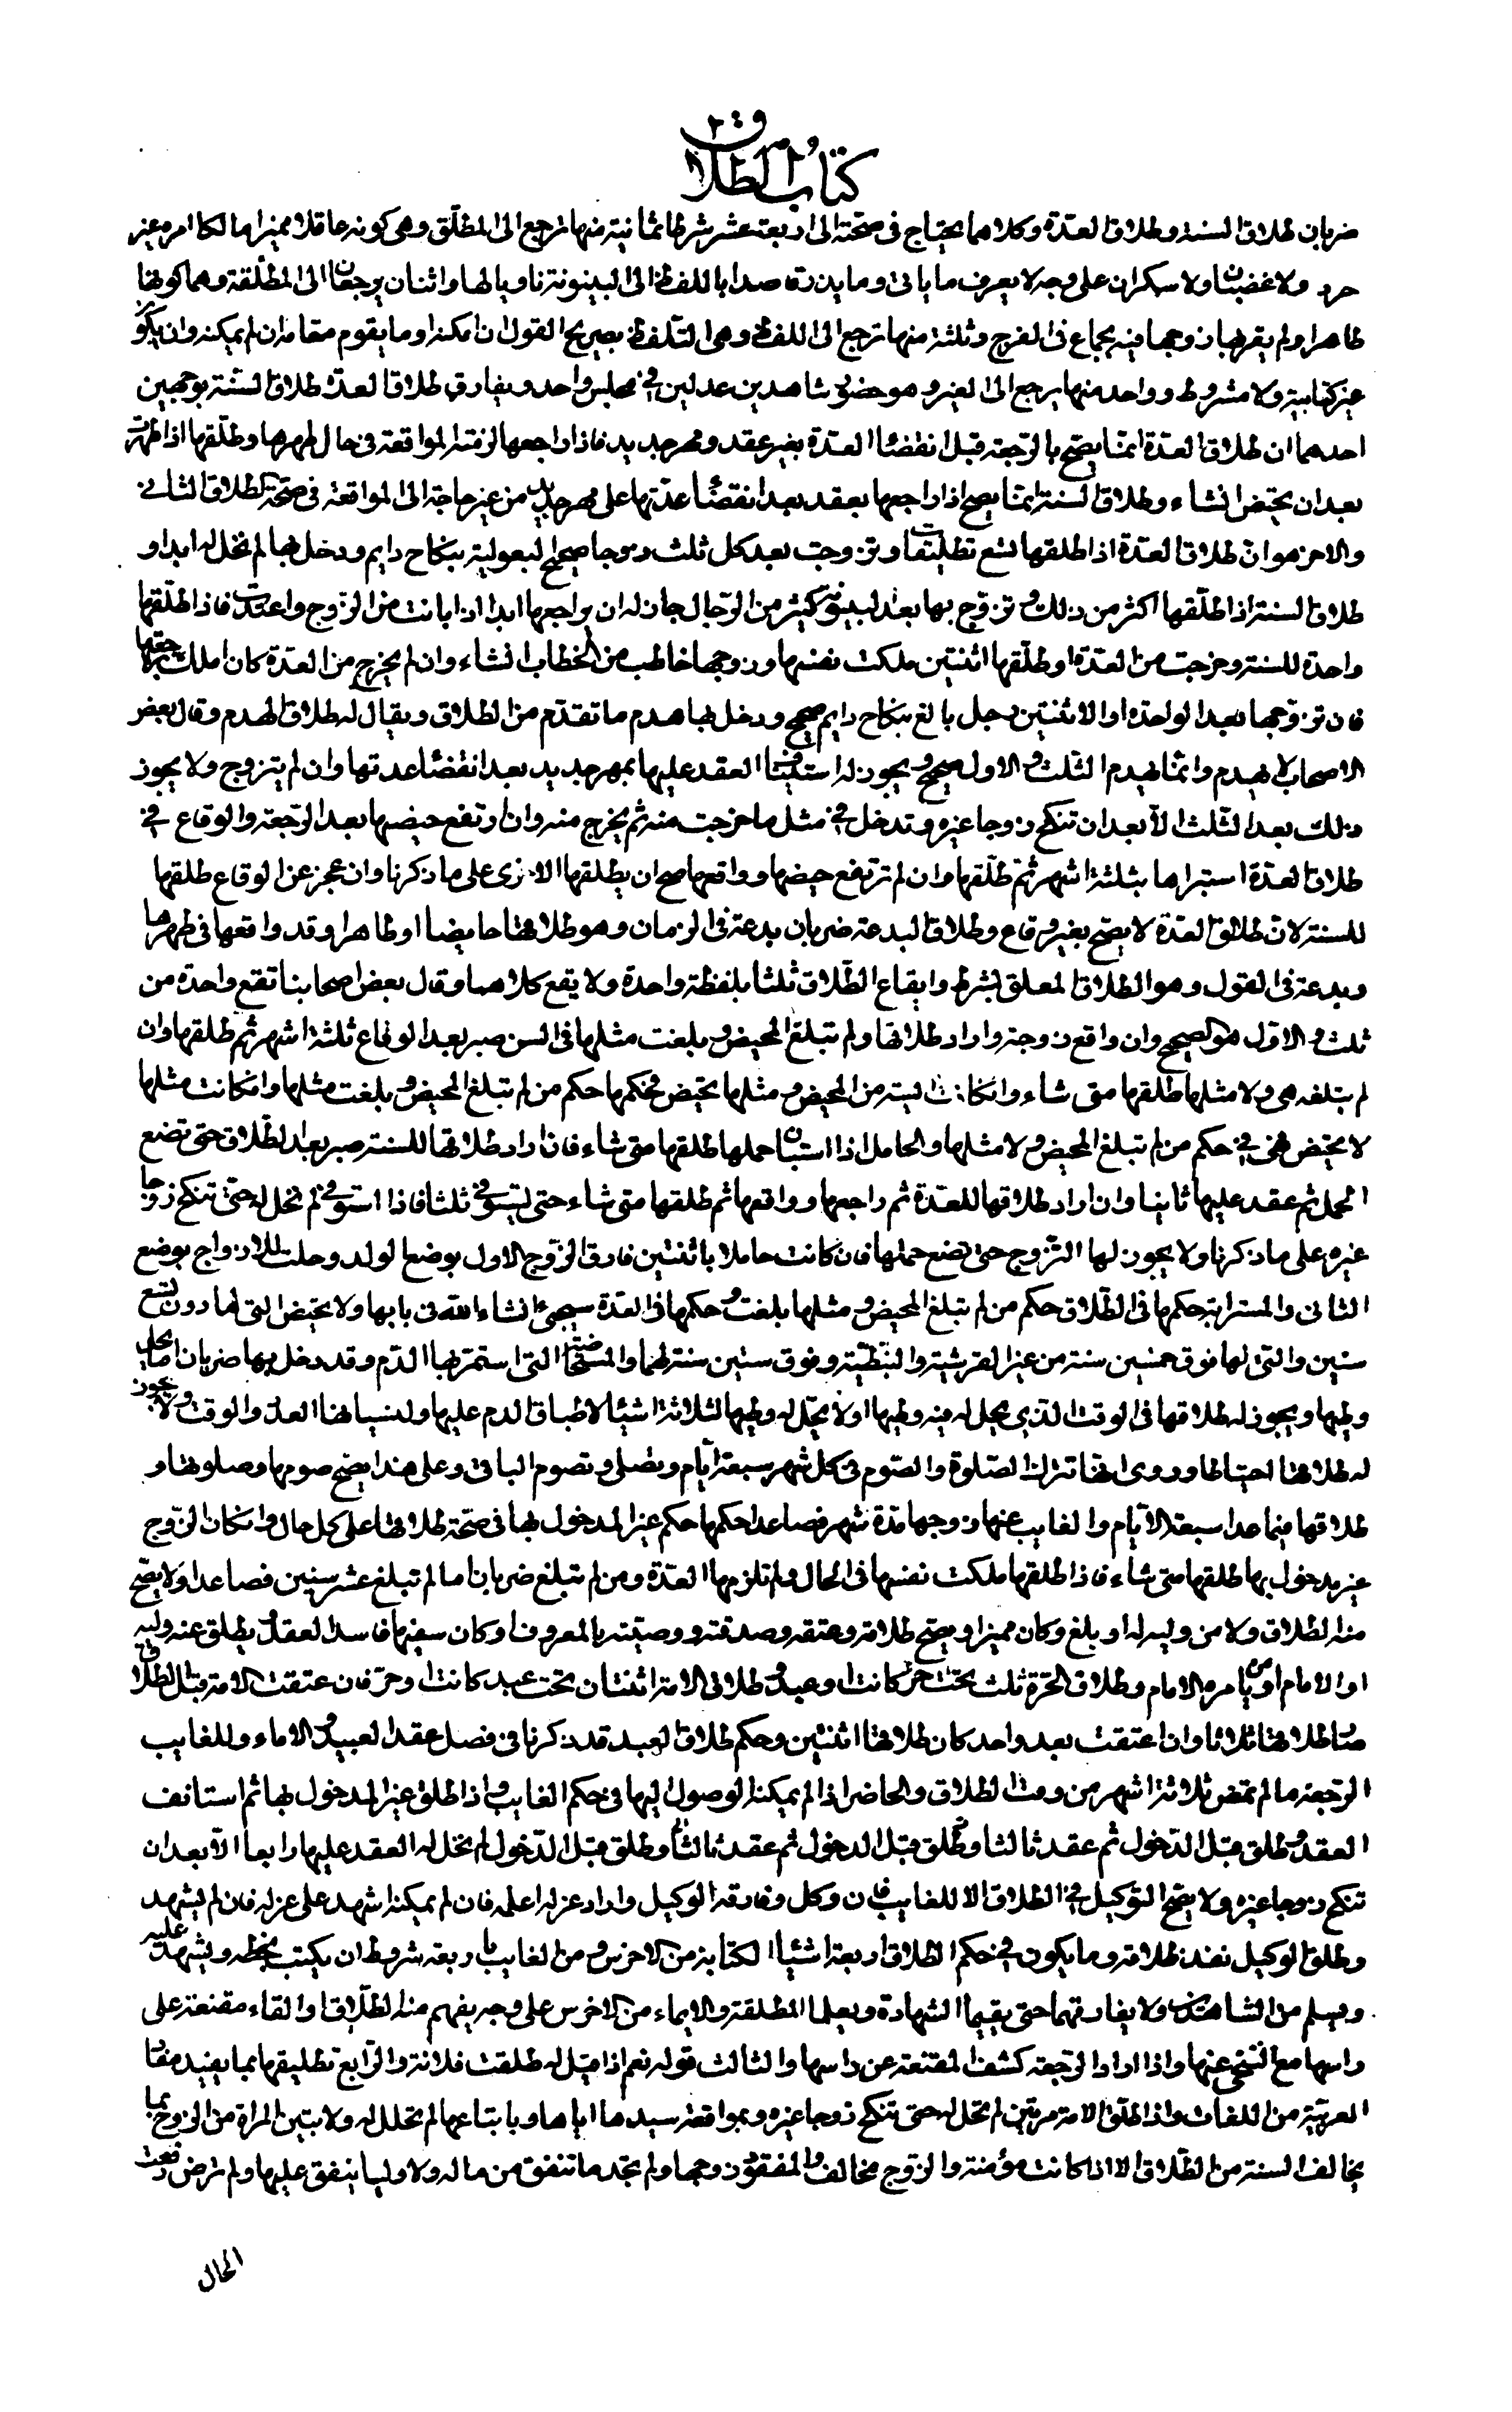 كتاب الطلاق
ضربان طلاق السنة وطلاق العدة وكلاهما يحتاج فى صحته الى اربعة عشر شرطا ثمانية منها ترجع الى المطلّق وهى كونه عاقلا مميزا مالكا امره غير
حرد ولا غضبان ولا سكران على وجه لا يعرف ما ياتى وما يذر قاصدا باللفظ الى البينونة ناويا لها واثنان يرجعان الى المطلّقة وهما كونها
طاهرا ولم يقربها زوجها فيه بجماع فى الفرج وثلثة منها ترجع الى اللفظ وهى التلفظ بصريح القول ان امكنه او ما يقوم مقامه ان لم يمكنه وان يكون
غير كتابية ولا مشروط وواحد منها يرجع الى الغير وهو حضور شاهدين عدلين فى مجلس واحد ويفارق طلاق العدّة طلاق السّنة بوجهين
احدهما ان طلاق العدّة انّما يصحّ بالرّجعة قبل انقضاء العدّة بغير عقد ومهر جديد فاذا راجعها لزمته المواقعة فى حال طهرها وطلّقها اذا طهرت
بعد ان تحيض ان شاء وطلاق السنة انّما يصح اذا راجعها بعقد بعد انقضاء عدّتها على مهر جديد من غير حاجة الى المواقعة فى صحّة الطلاق الثانى
والاخر هو ان طلاق العدّة اذا طلقها تسع تطليقات وتزوجت بعد كل ثلث زوجا صحيح البعولية بنكاح دايم ودخل بها لم تحل له ابدا و
طلاق السنة اذا طلّقها اكثر من ذلك وتزوج بها بعد البينونة كثير من الرّجال جاز له ان يراجعها ابدا اذا بانت من الزّوج واعتدت فاذا طلّقها
واحدة للسنة وخرجت من العدّة او طلّقها اثنتين ملكت نفسها وزوجها خاطب من الخطاب ان شاء وان لم يخرج من العدّة كان املك برجعتها
فان تزوّجها بعد الواحدة او الاثنتين رجل بالغ بنكاح دايم صحيح ودخل بها هدم ما تقدّم من الطلاق ويقال له طلاق الهدم وقال بعض
الاصحاب لا يهدم وانّما يهدم الثلث والاول صحيح ويجوز له استيناف العقد عليها بمهر جديد بعد انقضاء عدتها وان لم يتزوج ولا يجوز
ذلك بعد الثّلث الّا بعد ان تنكح زوجا غيره وتدخل فى مثل ما خرجت منه ثم يخرج منه وان ارتفع حيضها بعد الرّجعة والوقاع فى
طلاق العدّة استبراها بثلثة اشهر ثمّ طلّقها وان لم ترتفع حيضها وواقعها صح ان يطلقها الاخرى على ما ذكرنا وان عجز عن الوقاع طلقها
للسنة لانّ طلاق العدّة لا يصحّ بغير وقاع وطلاق البدعة ضربان بدعة فى الزمان وهو طلاقها حايضا او طاهرا وقد واقعها فى طهرها
وبدعة فى القول وهو الطلاق المعلق بشرط وايقاع الطّلاق ثلثا بلفظة واحدة ولا يقع كلاهما وقال بعض اصحابنا تقع واحدة من
ثلث والاوّل هو الصحيح وان واقع زوجته واراد طلاقها ولم تبلغ المحيض وبلغت مثلها فى السن صبر بعد الوقاع ثلثة اشهر ثمّ طلقها وان
لم يبلغه هى ولا مثلها طلقها متى شاء وان كانت ايسة من المحيض ومثلها تحيض فحكمها حكم من لم تبلغ المحيض وبلغت مثلها وان كانت مثلها
لا تحيض فهى فى حكم من لم تبلغ المحيض ولا مثلها والحامل اذا استبان حملها طلقها متى شاء فان اراد طلاقها للسنة صبر بعد الطّلاق حتى تضع
الحمل ثم عقد عليها ثانيا وان اراد طلاقها للعدّة ثم راجعها وواقعها ثم طلقها متى شاء حتى يستوفى ثلثا فاذا استوفى لم تحل له حتى تنكح زوجا
غيره على ما ذكرنا ولا يجوز لها التزوج حتى تضع حملها فان كانت حاملا باثنتين فارق الزوّج الاول بوضع الولد وحلت للازواج بوضع
الثانى والمسترابة حكمها فى الطّلاق حكم من لم تبلغ المحيض ومثلها بلغت وحكمها فى العدّة سيجئ ان شاء الله فى بابها ولا تحيض التى لها دون تسع
سنين والتى لها فوق خمسين سنة من غير القرشية والنبطيّة وفوق ستين سنة لهما والمستحاضة التى استمرّ بها الدّم وقد دخل بها ضربان اما يحل
وطيها ويجوز له طلاقها فى الوقت الّذى يحل له فيه وطيها او لا يحلّ له وطيها لثلاثة اشياء لاطباق الدم عليها ولنسيانها العدد والوقت ولا يجوز
له طلاقها احتياطا وروى انّها تترك الصّلوة والصّوم فى كل شهر سبعة ايّام وتصلى وتصوم الباقى وعلى هذا يصحّ صومها وصلوتها و
طلاقها فيما عدا سبعة الايّام والغايب عنها زوجها مدّة شهر فصاعدا حكمها حكم غير المدخول بها فى صحّة طلاقها على كل حال وان كان الزوج
غير مدخول بها طلقها متى شاء فاذا طلقها ملكت نفسها فى الحال ولم تلزمها العدّة ومن لم تبلغ ضربان اما لم تبلغ عشر سنين فصاعدا ولا يصحّ
منه الطّلاق ولا من وليه له او بلغ وكان مميزا ويصحّ طلاقه وعتقه وصدقته ووصيّته بالمعروف او كان سفيها فاسد العقل ويطلق عنه وليه
او الامام او من يامره الامام وطلاق الحرّة ثلث تحت حرّ كانت او عبد وطلاق الامة اثنتان تحت عبد كانت او حرّ فان عتقت الامة قبل الطّلاق
صار طلاقها ثلاثا وان اعتقت بعد واحد كان طلاقها اثنتين وحكم طلاق العبد قد ذكرنا فى فصل عقد العبيد والاماء وللغايب
الرّجعة ما لم تمض ثلاثة اشهر من وقت الطلاق والحاضر اذا لم يمكنه الوصول اليها فى حكم الغايب واذا طلق غير المدخول بها ثم استانف
العقد وطلق قبل الدّخول ثم عقد ثالثا وطلق قبل الدخول ثم عقد ثالثا وطلق قبل الدّخول لم تحل له العقد عليها رابعا الّا بعد ان
تنكح زوجا غيره ولا يصحّ التوكيل فى الطلاق الا للغايب فان وكل وفارقه الوكيل واراد عزله اعلمه فان لم يمكنه اشهد على عزله فان لم يشهد
وطلق الوكيل نفذ طلاقه وما يكون فى حكم الطلاق اربعة اشياء الكتابة من الاخرس ومن الغايب باربعة شروط ان يكتب بخطه ويشهد عليه
ويسلم من الشاهدين ولا يفارقهما حتى يقيما الشهادة ويعلما المطلقة والايماء من الاخرس على وجه يفهم منه الطّلاق والقاء مقنعة على
راسها مع التنحى عنها واذا اراد الرّجعة كشف المقنعة عن راسها والثالث قوله نعم اذا قيل له طلقت فلانة والرّابع تطليقها بما يفيد مفاد
العربيّة من اللغات واذا طلّق الامة مرتين لم تحل له حتى تنكح زوجا غيره وبمواقعة سيدها اياها وبابتاعها لم تحلل له ولا تبين المراة من الزوج بما
يخالف السنة من الطّلاق الا اذا كانت مؤمنة والزوج مخالف والمفقود زوجها ولم تجد ما تنفق من ماله ولا وليا ينفق عليها ولم ترض رفعت
الحال